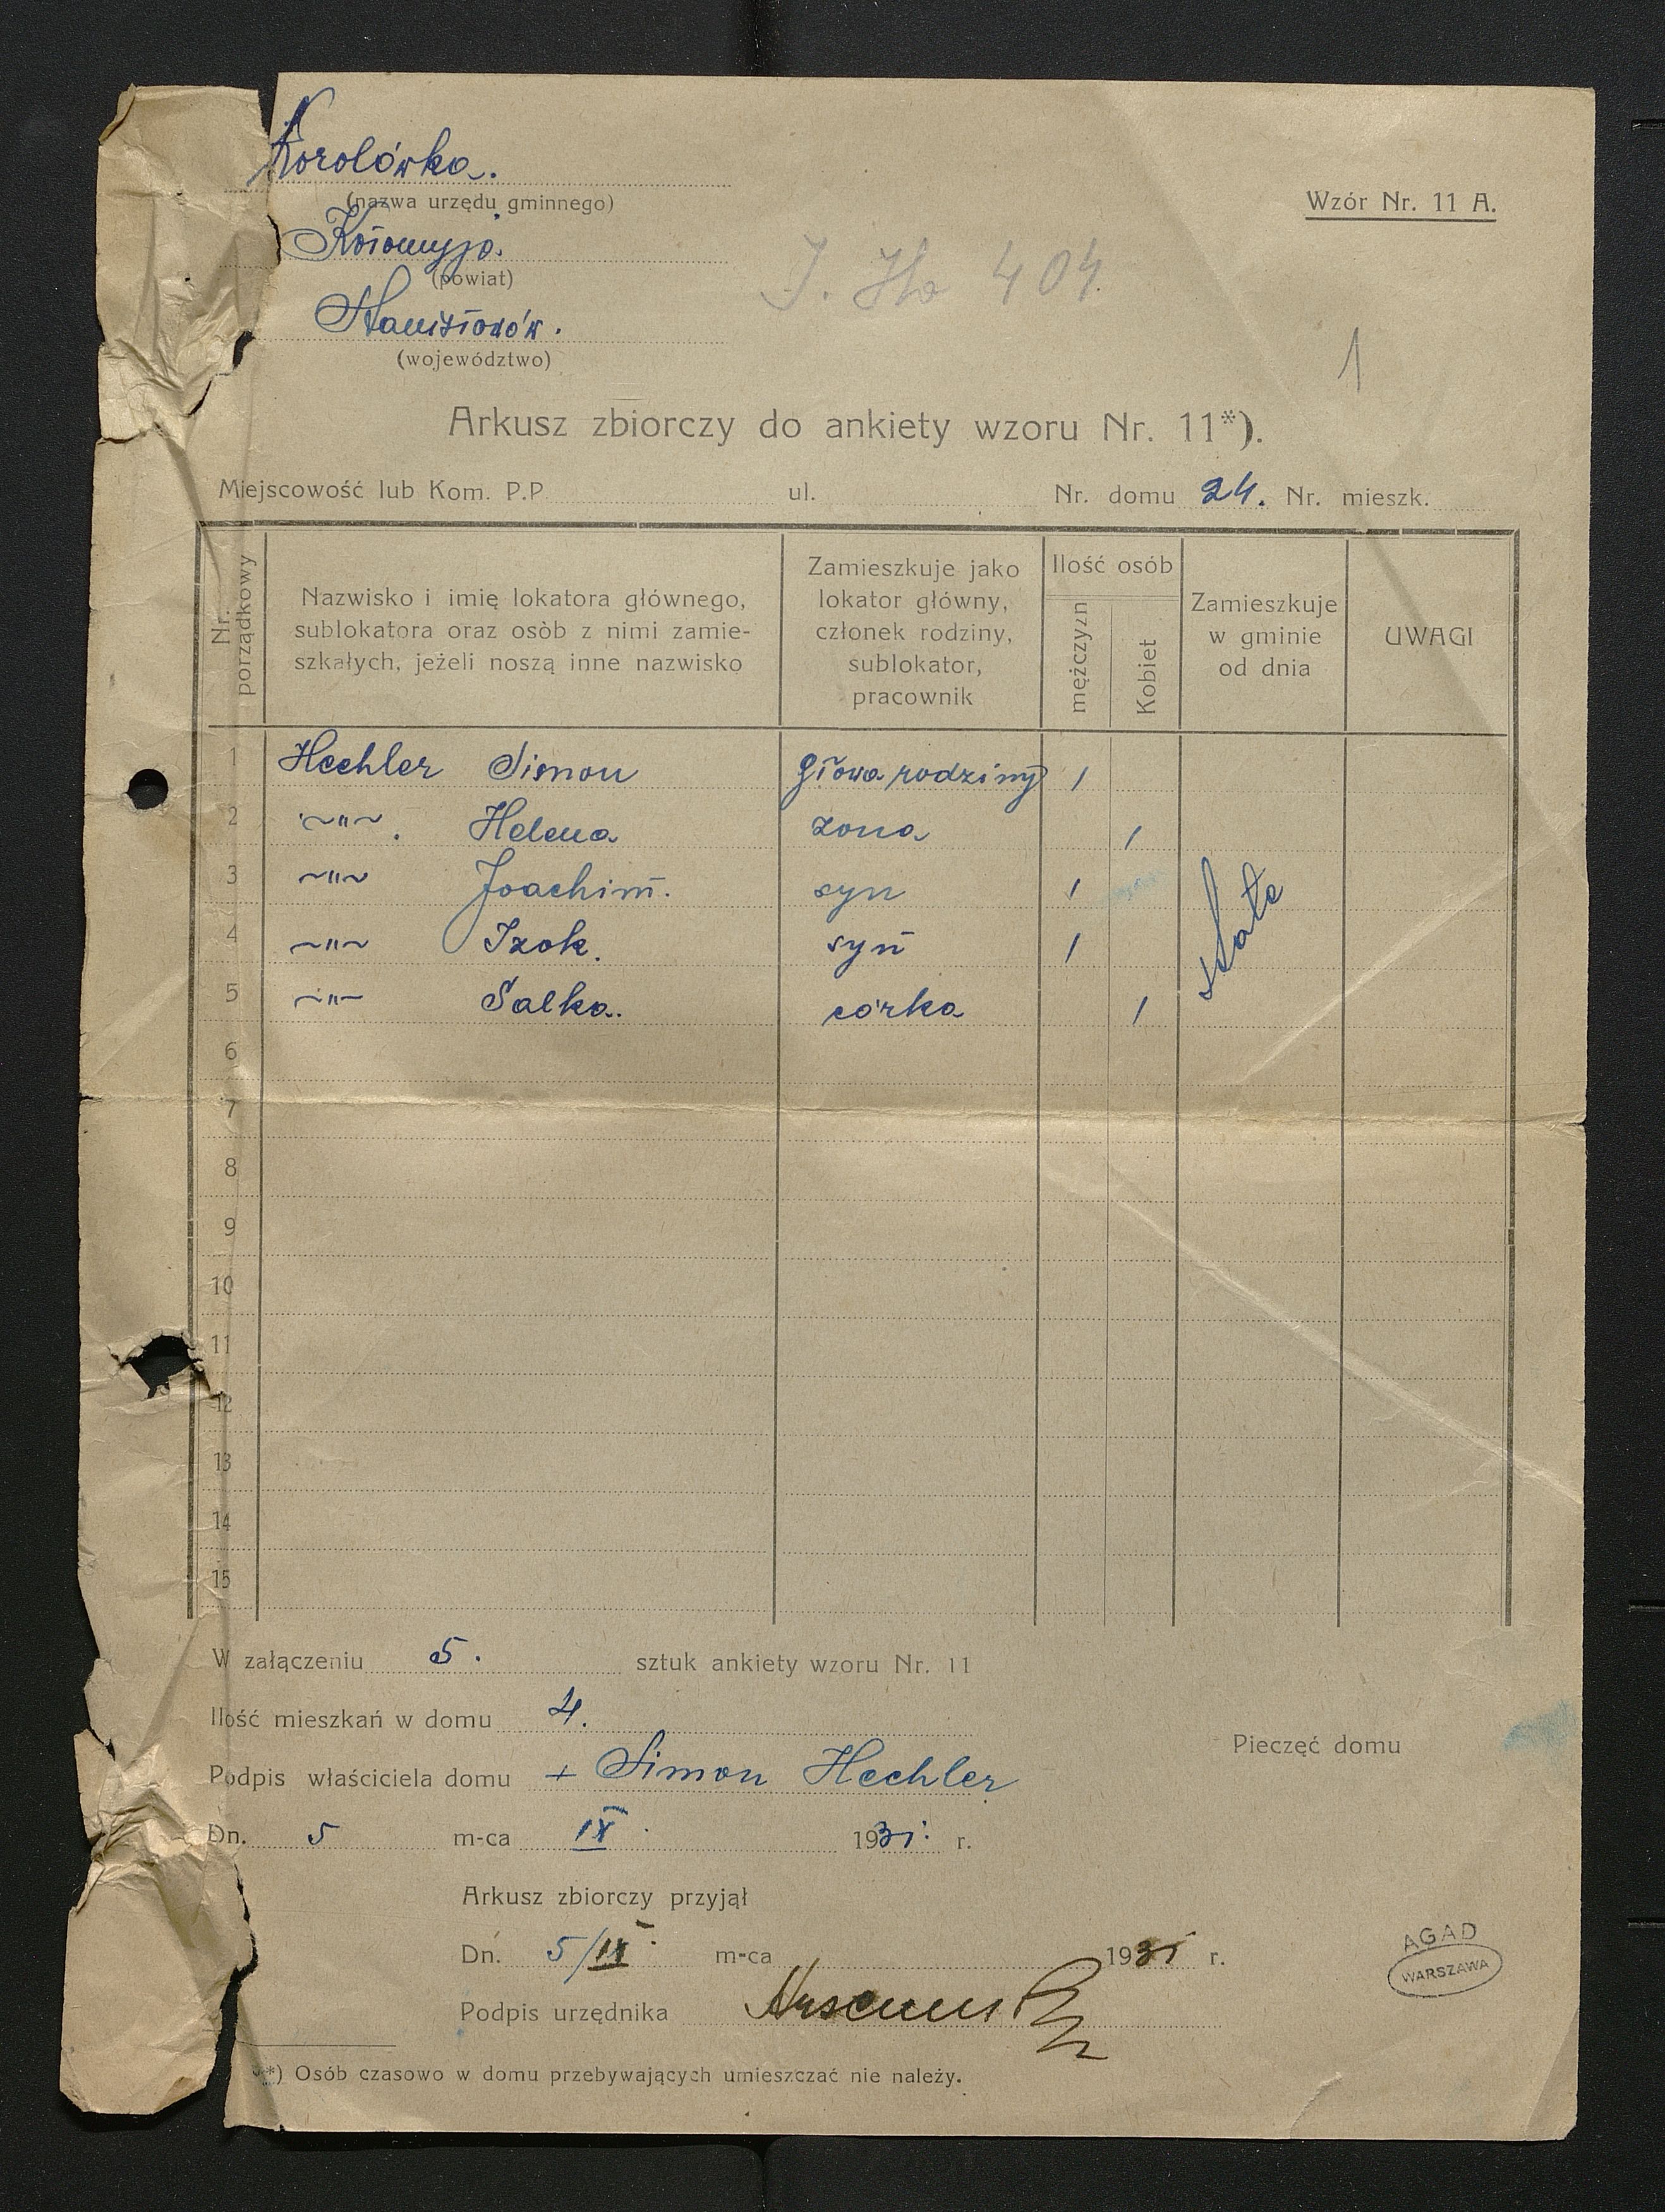 Korolówka.
(nazwa urzędu gminnego)
Wzór Nr. 11 A.
Kołomyja.
(powiat)
Stanisławów.
(województwo)
404
1
Arkusz zbiorczy do ankiety wzoru Nr. 11*).
Miejscowość lub Kom. P.P. ul. Nr. domu 24. Nr. mieszk.
Nr. porządkowy
Nazwisko i imię lokatora głównego,
sublokatora oraz osòb z nimi zamie-
szkałych, jeżeli noszą inne nazwisko
Zamieszkuje jako
lokator główny,
członek rodziny,
sublokator,
pracownik
Ilość osób
mężczyzn
Kobiet
Zamieszkuje
w gminie
od dnia
UWAGI
1 Hechler Simon głowa rodziny 1
2 ~"~. Helena zona 1
3 ~"~ Joachim. syn 1
4 ~"~ Izak. syn 1
5 ~"~ Salka. córka 1
stale
6
7
8
9
10
11
12
13
14
15
W załączeniu 5. sztuk ankiety wzoru Nr. 11
Ilość mieszkań w domu 4.
Pieczęć domu
Podpis właściciela domu + Simon Hechler
Dn. 5 m-ca IX. 1931. r.
Arkusz zbiorczy przyjął
Dn. 5/IX. m-ca 1931 r.
Podpis urzędnika
AGAD
WARSZAWA
*) Osób czasowo w domu przebywających umieszczać nie należy.